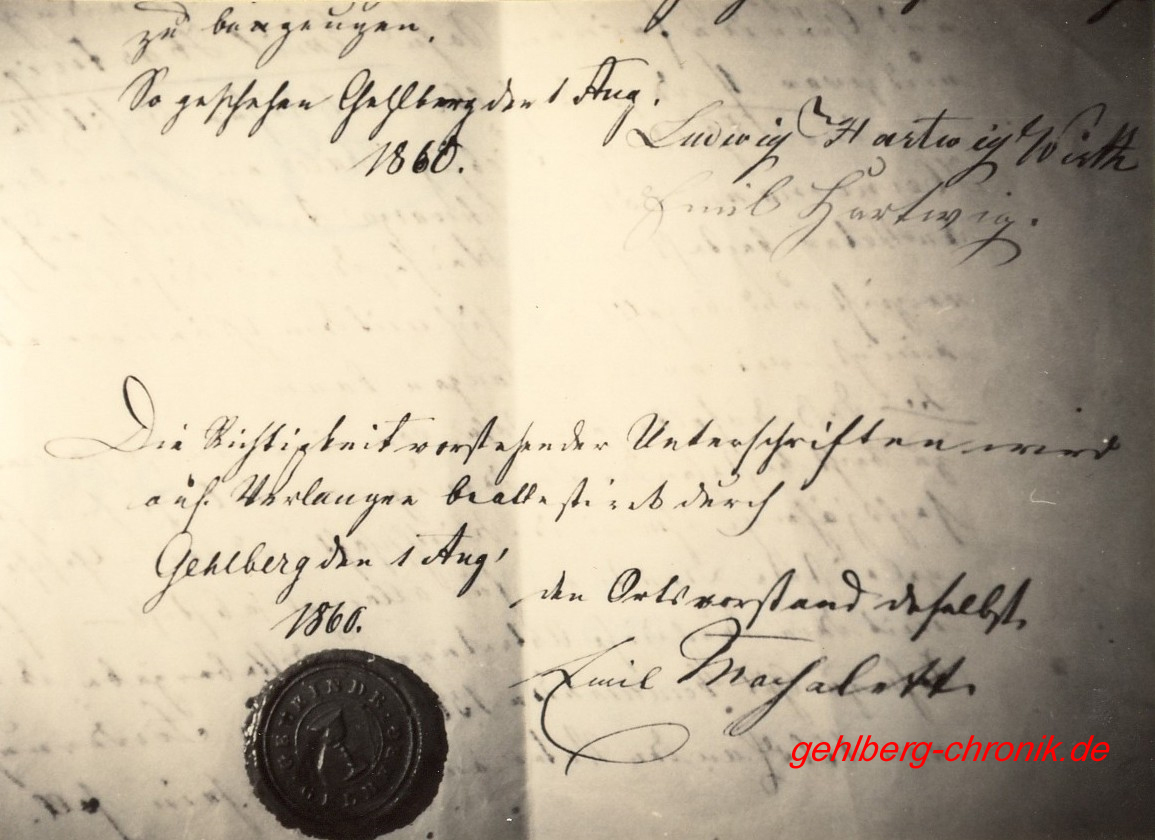 zu bezeugen.
So geschehen Gehlberg den 1 Aug.
1860.
Ludwig Hartwig Wirth
Emil Hartwig.
Die Richtigkeit vorstehender Unterschriften wird
auf Verlangen beattestirt durch
Gehlberg den 1 Aug.
1860.
den Ortsvorstand daselbst.
Emil Machalett.
GEMEINDE
gehlberg-chronik.de